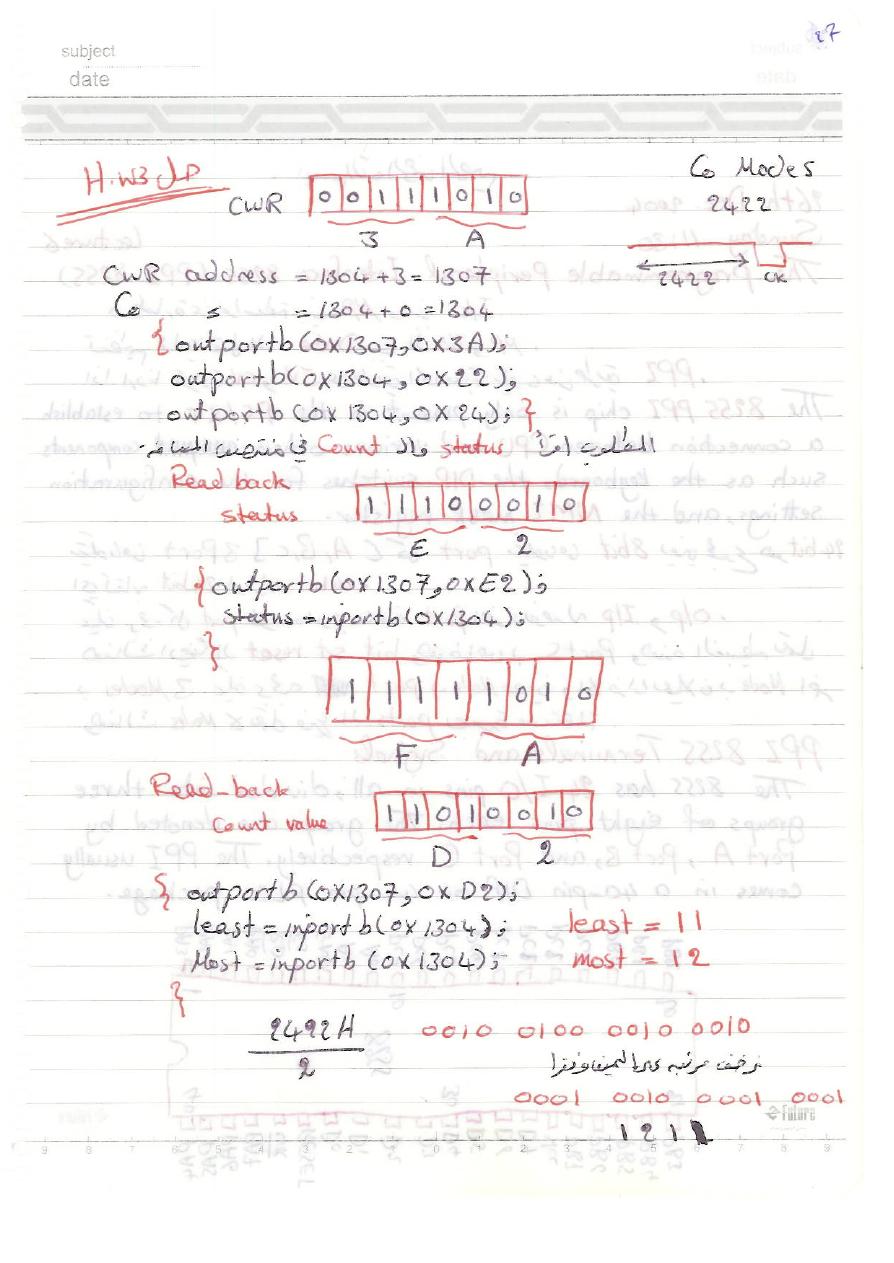 27
subject
date
H.W3 حل
C0 Modes
2422
CWR 0 0 1 1 1 0 1 0
3 A
2422 CK
CWR address = 1304 + 3 = 1307
C0 = 1304 + 0 = 1304
{ outportb(0X1307,0X3A);
outportb(0X1304,0X22);
outportb(0X1304,0X24); }
المطلوب اقرأ status وال Count في منتصف
Read back
status
1 1 1 0 0 0 1 0
E 2
{ outportb(0X1307,0XE2);
status = inportb(0X1304);
}
1 1 1 1 1 0 1 0
F A
Read-back
Count value
1 1 0 1 0 0 1 0
D 2
{ outportb(0X1307,0XD2);
least = inportb(0X1304); least = 11
Most = inportb(0X1304); most = 12
}
2422H 0010 0100 0010 0010
2
0001 0010 0001 0001
Future
1 2 1 1
9 8 7 6 5 4 3 2 1 0 1 2 3 4 5 6 7 8 9